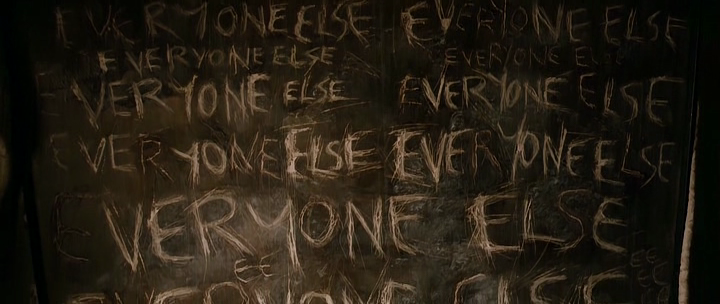 EVERYONE ELSE EVERYONE ELSE
EVERYONE ELSE EVERYONE ELSE
EVERYONE ELSE EVERYONE ELSE
EVERYONE ELSE EVERYONE ELSE
EVERYONE ELSE
EE
EVERYONE ELSE